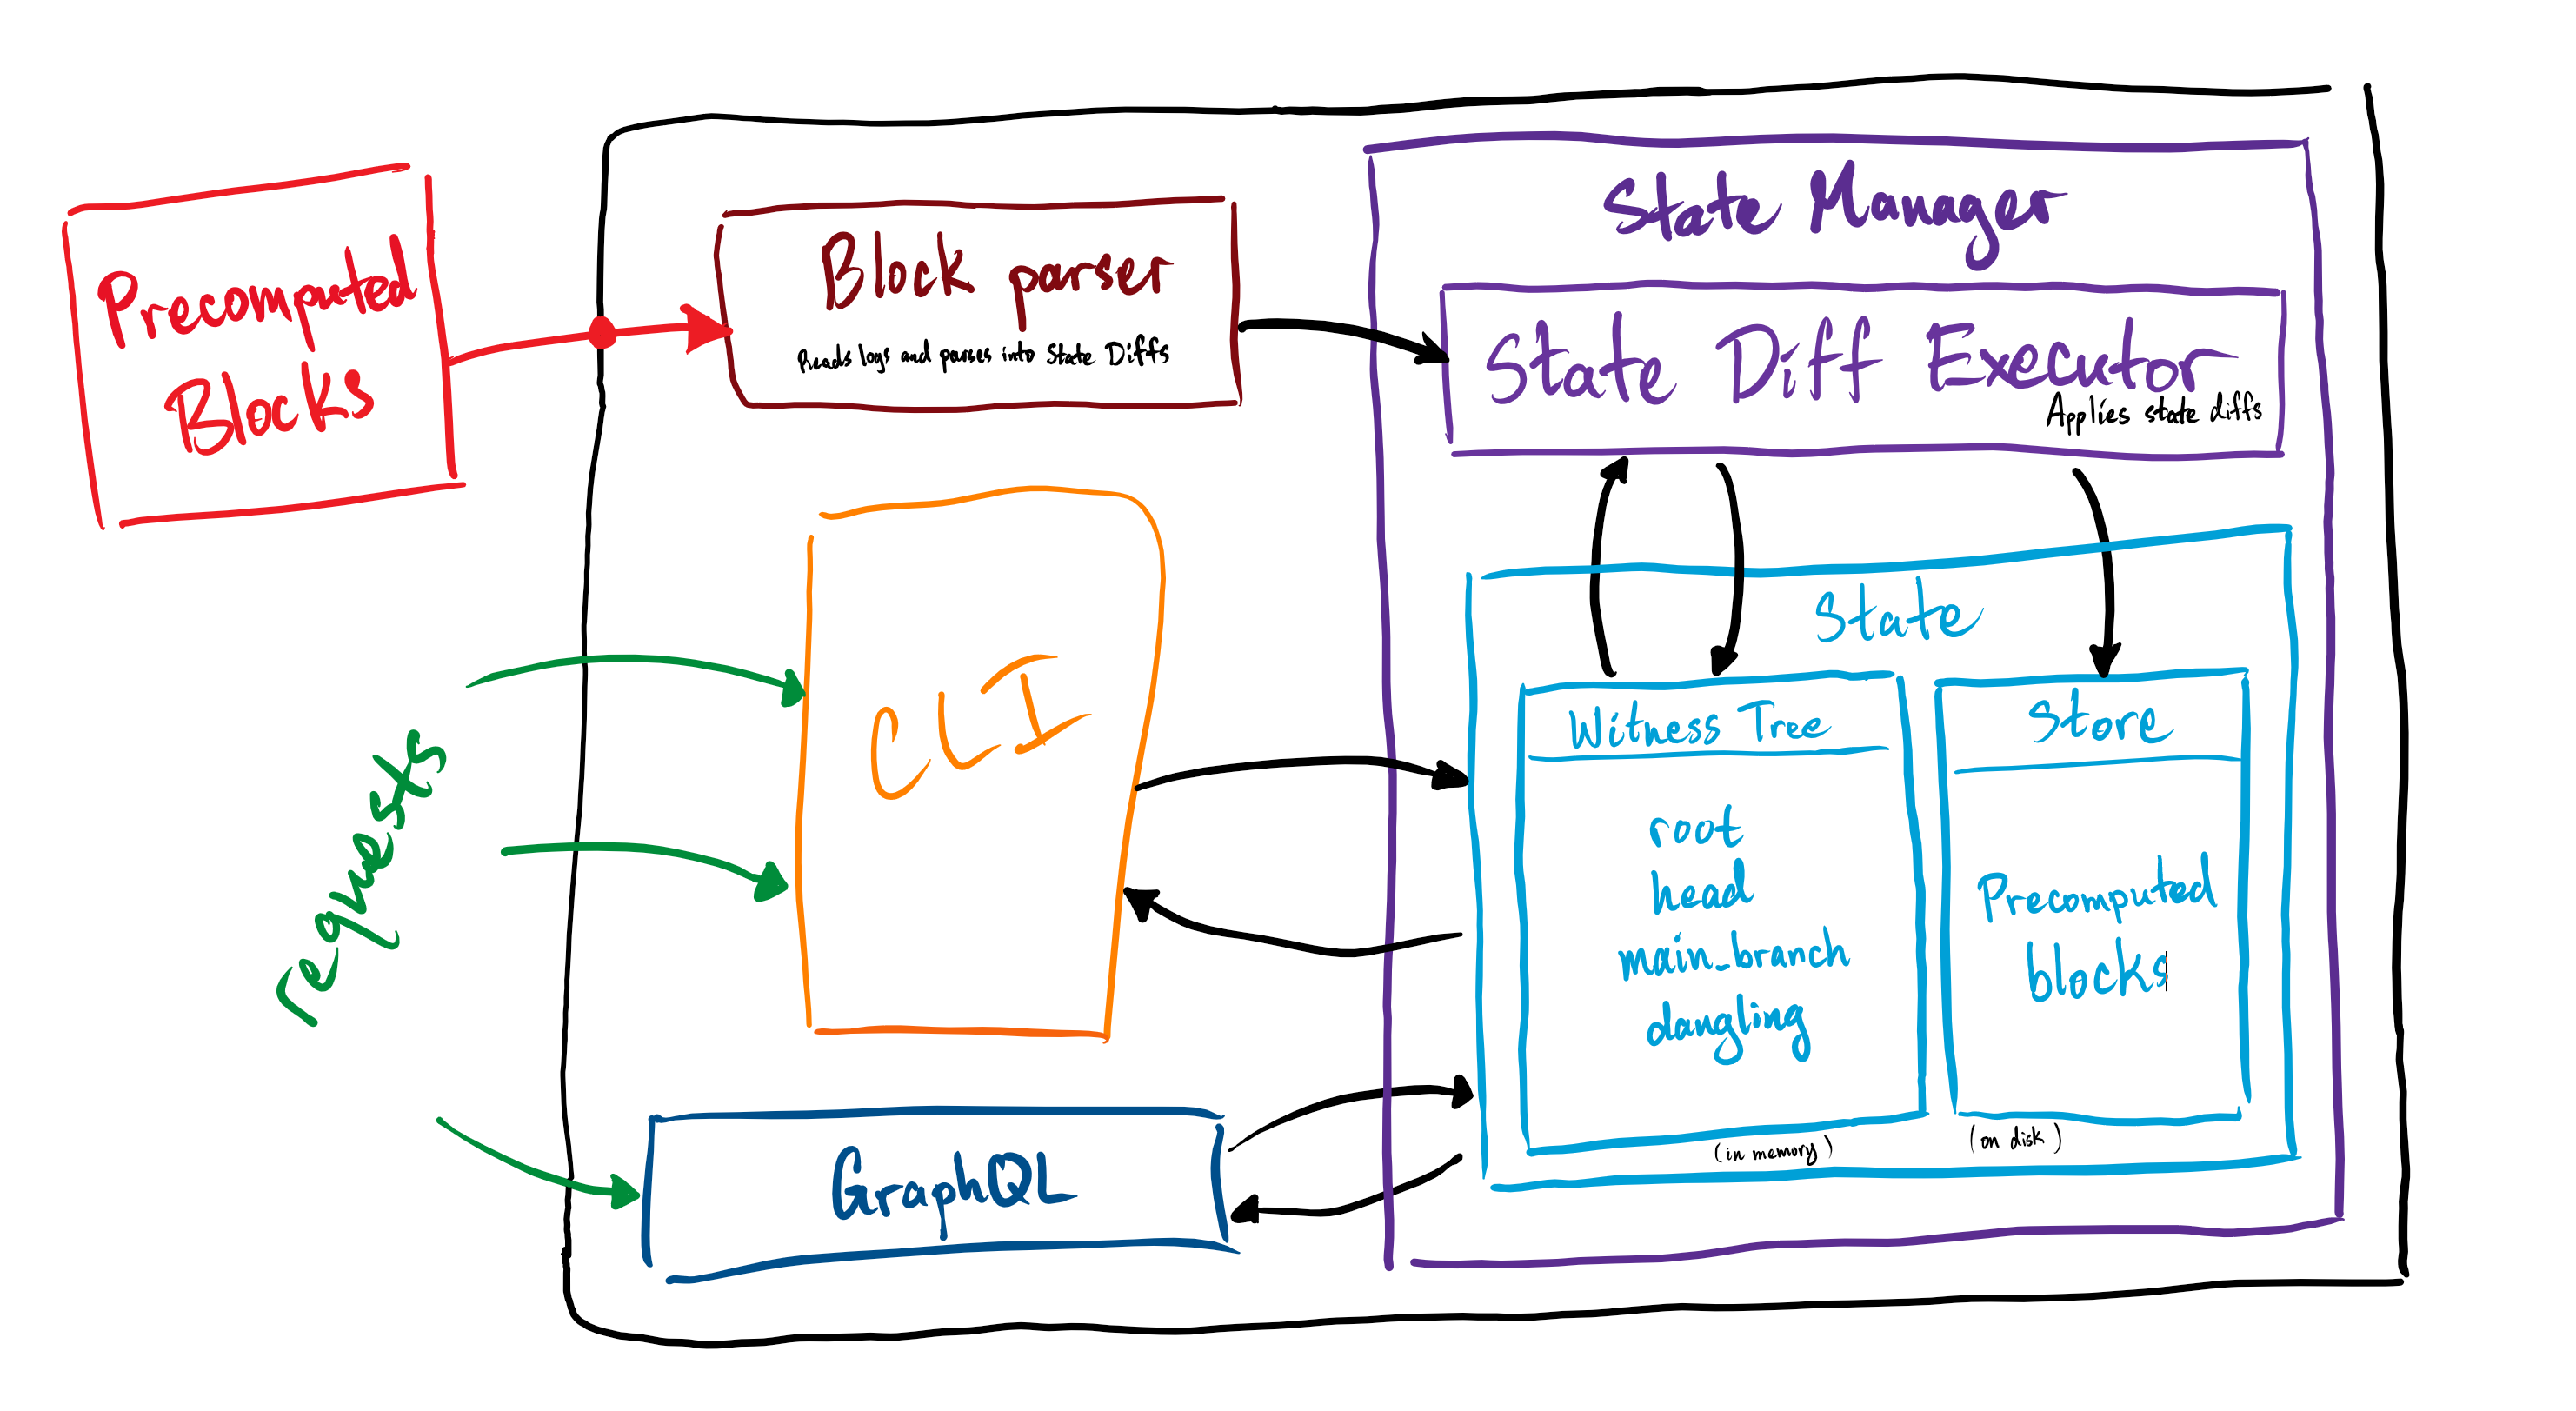 Precomputed
Blocks
Block parser
Reads logs and parses into State Diffs
State Manager
State Diff Executor
Applies state diffs
requests
CLI
GraphQL
State
Witness Tree
root
head
main_branch
dangling
(in memory)
Store
Precomputed
blocks
(on disk)